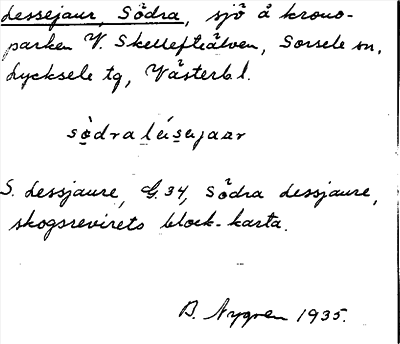 Lessejaur, Södra, sjö å krono-
parken V. Skellefteälven, Sorsele sn,
Lycksele tg, Västerb l.
södra
S. Lessjaure, G. 34, Södra Lessjaure,
skogsrevirets block-karta.
B. Nygren 1935.